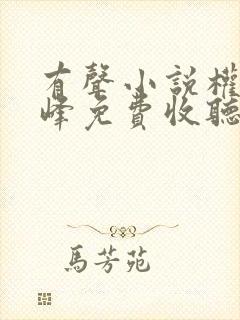 有聲小說權
峰免費收聽
馬芳苑